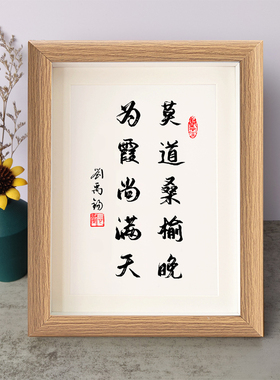 莫道桑榆晚
为霞尚满天
劉禹锡